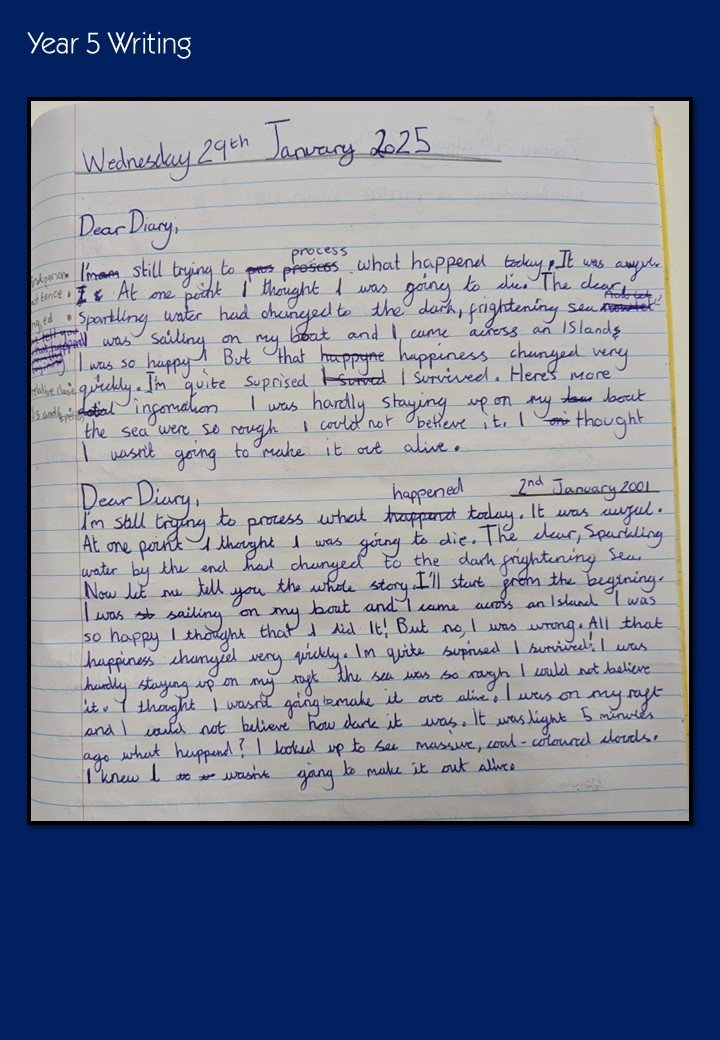 Year 5 Writing
Wednesday 29th January 2025
Dear Diary,
process
I'm still trying to what happend today. It was awful.
At one point I thought I was going to die. The clear,
Sparkling water had changed to the dark, frightening sea
I was sailing on my boat and I came across an Island
I was so happy! But that happiness changed very
quickly. I'm quite suprised I survived. Here's more
infomation I was hardly staying up on my boat
the sea were so rough I could not believe it. I thought
I wasn't going to make it out alive.
happened 2nd January 2001
Dear Diary,
I'm still trying to process what today. It was awful.
At one point I thought I was going to die. The clear, Sparkling
water by the end had changed to the dark frightening Sea.
Now let me tell you the whole story. I'll start from the begining.
I was sailing on my boat and I came across an Island I was
so happy I thought that I did It! But no, I was wrong. All that
happiness changed very quickly. I'm quite suprised I survived! I was
hardly staying up on my raft the sea was so rough I could not believe
it. I thought I wasn't going to make it out alive. I was on my raft
and I could not believe how dark it was. It was light 5 minutes
ago what happend? I looked up to see massive, coal-coloured clouds.
I knew I wasn't going to make it out alive.